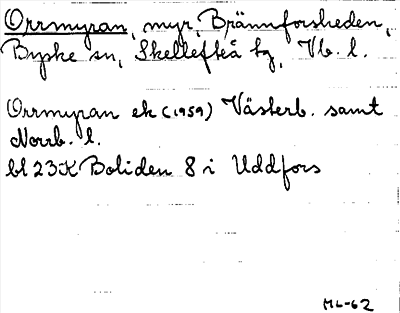 Orrmyran, myr, Brännforsheden,
Byske sn, Skellefteå tg, Vb. l.
Orrmyran ek (1959) Västerb. samt
Norrb. l.
bl 23K Boliden 8 i Uddfors
ML-62